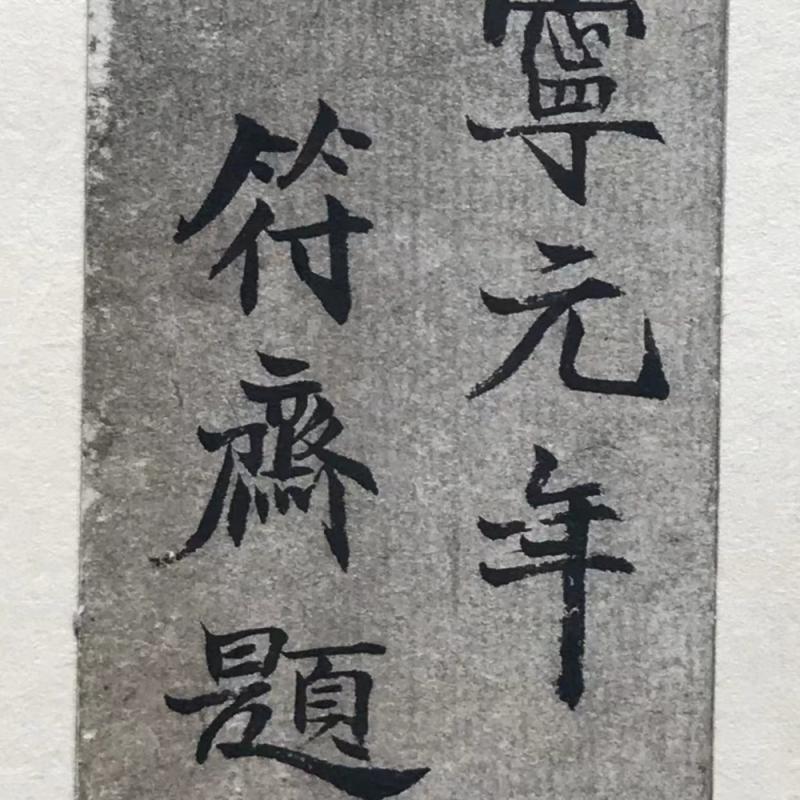 寧元年
符齋題